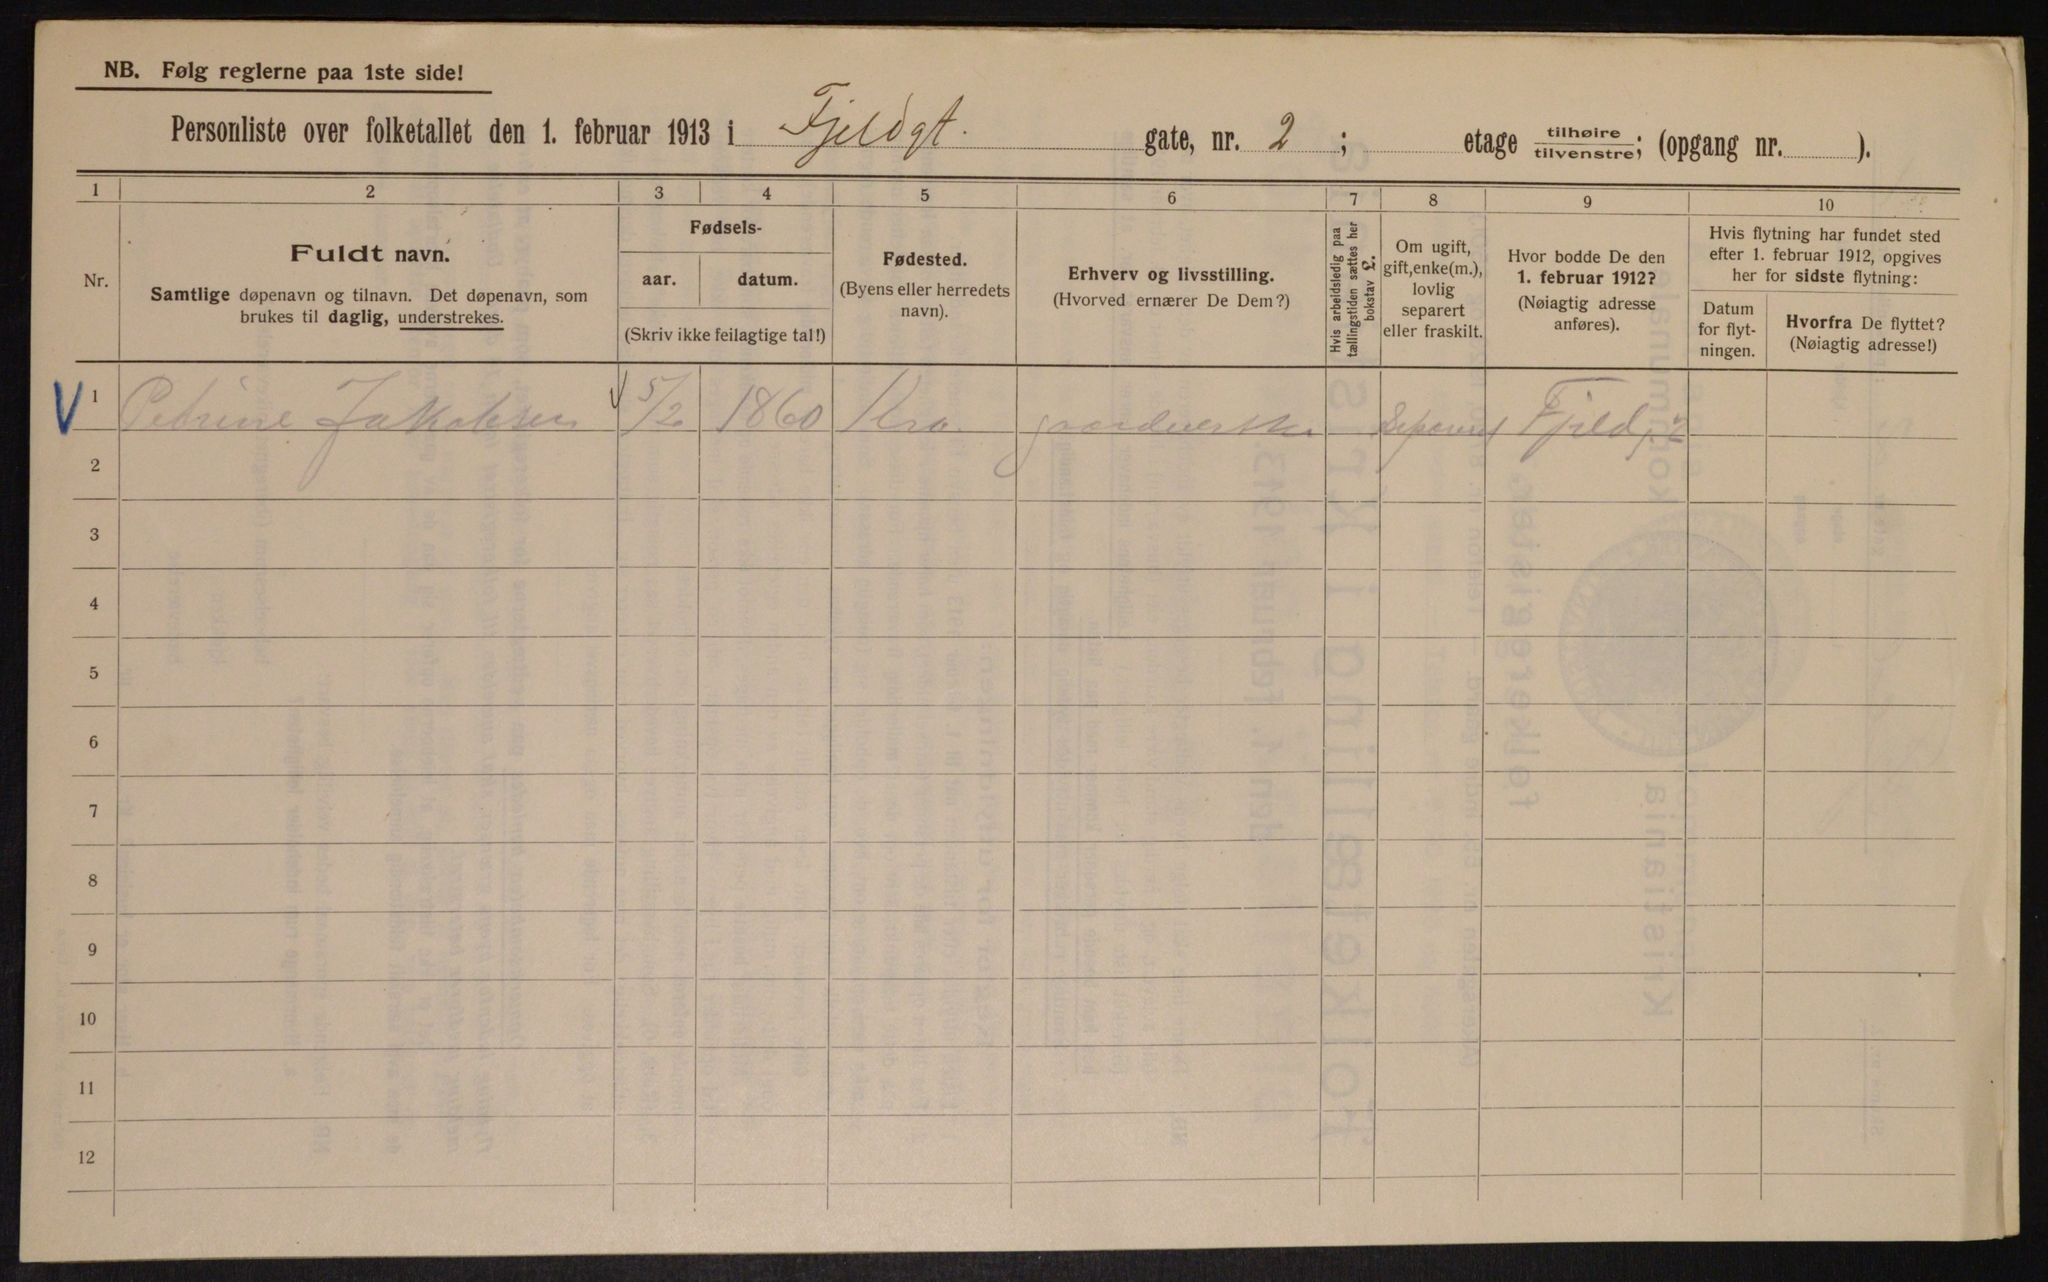 NB. Følg reglerne paa 1ste side!
Personliste over folketallet den 1. februar 1913 i Fjeldgt. gate, nr. 2; etage tilhøire/tilvenstre; (opgang nr. ).
1 2 3 4 5 6 7 8 9 10
Nr.
Fuldt navn.
Samtlige døpenavn og tilnavn. Det døpenavn, som
brukes til daglig, understrekes.
Fødsels-
aar. datum.
(Skriv ikke feilagtige tal!)
Fødested.
(Byens eller herredets
navn).
Erhverv og livsstilling.
(Hvorved ernærer De Dem?)
Hvis arbeidsledig paa
tællingstiden sættes her
bokstav L.
Om ugift,
gift, enke(m.),
lovlig
separert
eller fraskilt.
Hvor bodde De den
1. februar 1912?
(Nøiagtig adresse
anføres).
Hvis flytning har fundet sted
efter 1. februar 1912, opgives
her for sidste flytning:
Datum
for flyt-
ningen.
Hvorfra De flyttet?
(Nøiagtig adresse!)
V 1 Petrine Jakobsen 5/2 1860 Kra. Fjeldg 2
2
3
4
5
6
7
8
9
10
11
12